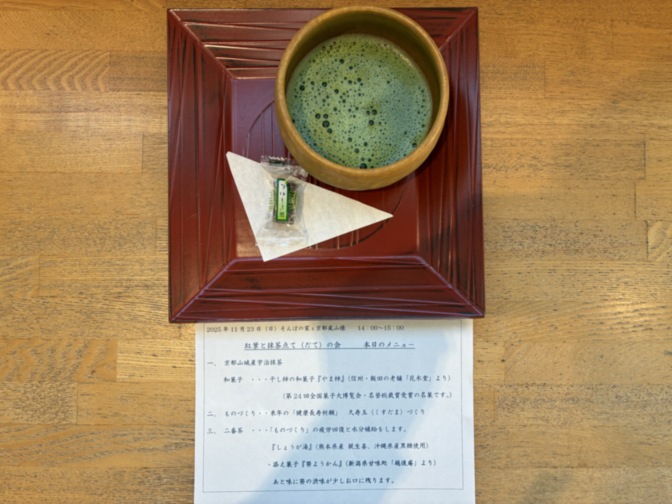 2025年11月23日（日）そんぽの家s京都嵐山様　14:00～15:00
紅葉と抹茶点て（だて）の会　本日のメニュー
一、京都山城産宇治抹茶
和菓子・・・干し柿の和菓子『やま柿』（信州・飯田の老舗「花木堂」より）
（第24回全国菓子大博覧会・名誉総裁賞受賞の名菓です。）
二、ものづくり・・来年の「健康長寿祈願」 久寿玉（くすだま）づくり
三、二番茶・・・「ものづくり」の疲労回復と水分補給をします。
『しょうが湯』（熊本県産 親生姜、沖縄県産黒糖使用）
・添え菓子『笹ようかん』（新潟県甘味処「越後庵」より）
あと味に笹の渋味が少しお口に残ります。